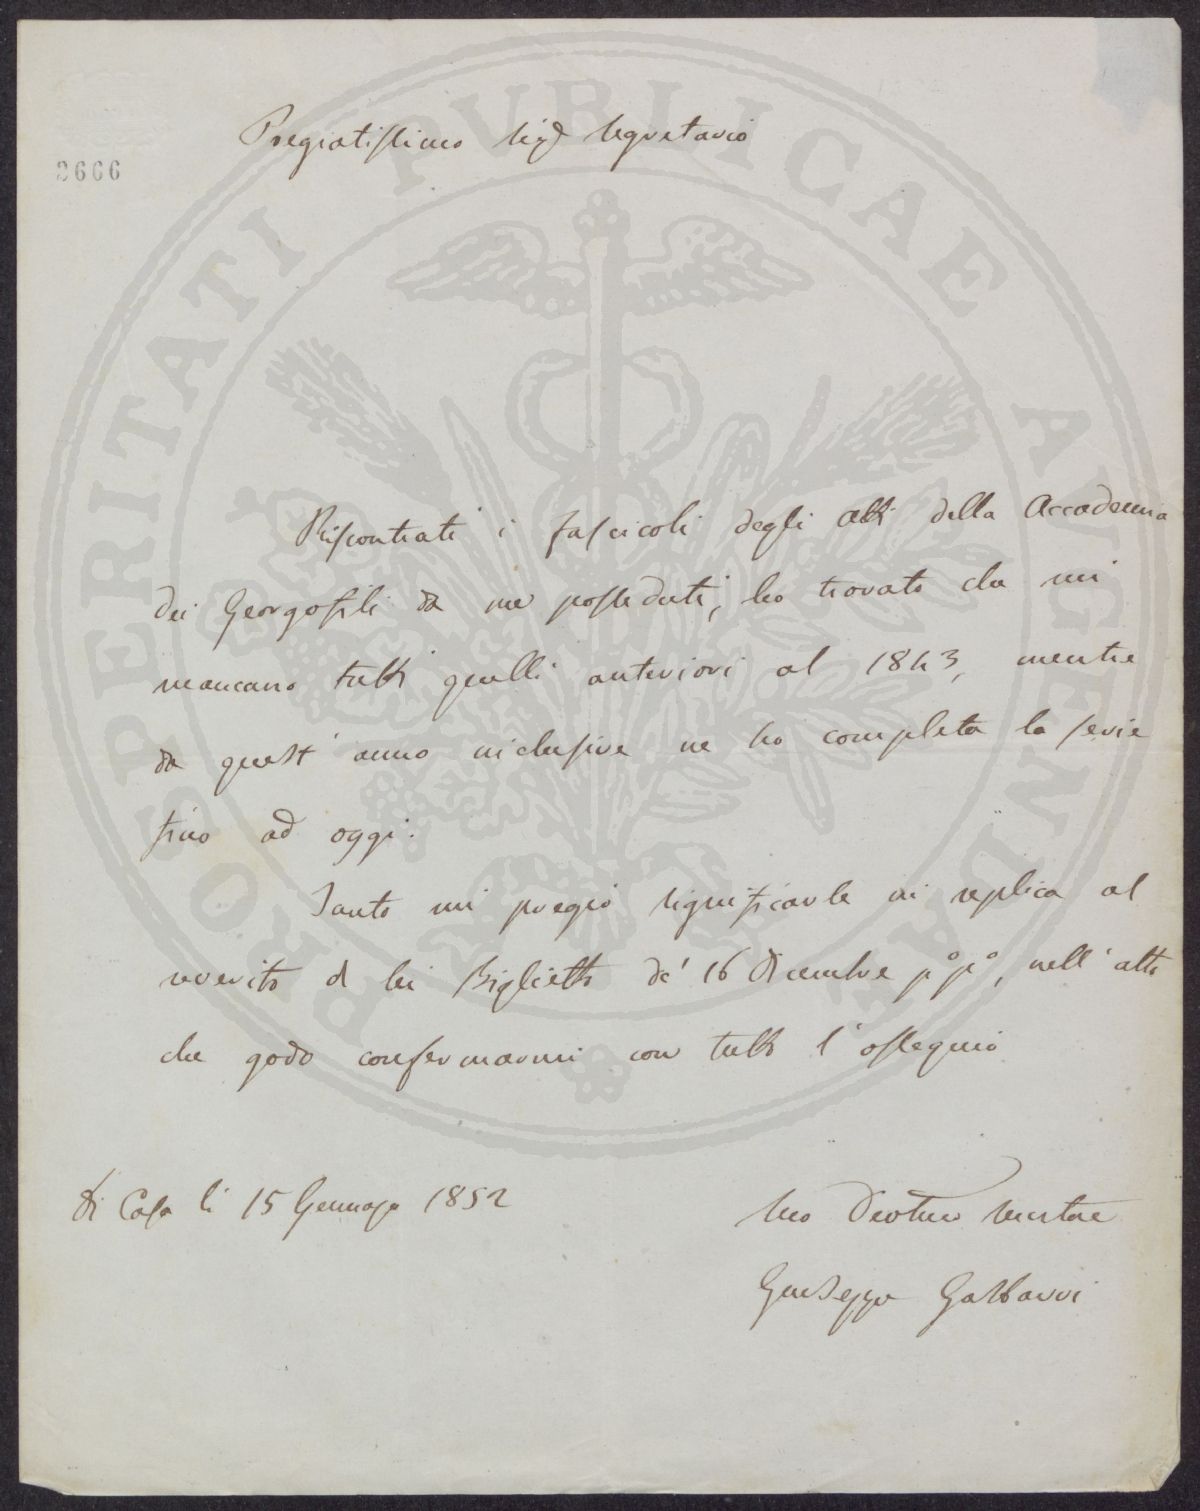 PROSPERITATI PUBLICAE AUGENDAE
2666
Pregiatissimo Sigr Segretario
Riscontrati i fascicoli degli Atti della Accademia
dei Georgofili da me posseduti, ho trovato che mi
mancano tutti quelli anteriori al 1843, mentre
da quest'anno inclusive ne ho completa la serie
fino ad oggi.
Tanto mi pregio significarle in replica al
riverito di lei Biglietto de' 16 Dicembre p°p°, nell'atto
che godo confermarmi con tutto l'ossequio
Di Casa li 15 Gennajo 1852
Suo Devotmo Servitore
Giuseppe